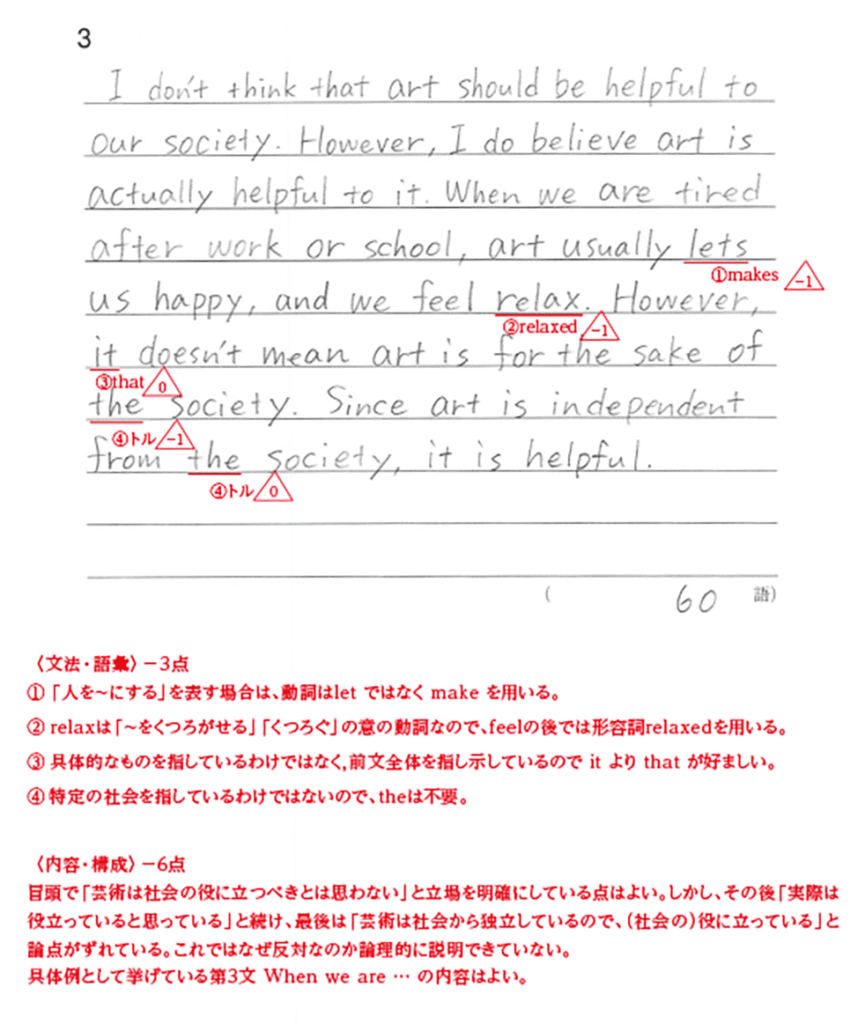 3
I don't think that art should be helpful to
our society. However, I do believe art is
actually helpful to it. When we are tired
after work or school, art usually lets
①makes -1
us happy, and we feel relax. However,
②relaxed -1
it doesn't mean art is for the sake of
③that 0
the society. Since art is independent
④トル -1
from the society, it is helpful.
④トル 0
( 60 語)
〈文法・語彙〉－3点
①「人を~にする」を表す場合は、動詞はlet ではなく make を用いる。
② relaxは「~をくつろがせる」「くつろぐ」の意の動詞なので、feelの後では形容詞relaxedを用いる。
③ 具体的なものを指しているわけではなく,前文全体を指し示しているので it より that が好ましい。
④ 特定の社会を指しているわけではないので、theは不要。
〈内容・構成〉－6点
冒頭で「芸術は社会の役に立つべきとは思わない」と立場を明確にしている点はよい。しかし、その後「実際は
役立っていると思っている」と続け、最後は「芸術は社会から独立しているので、(社会の)役に立っている」と
論点がずれている。これではなぜ反対なのか論理的に説明できていない。
具体例として挙げている第3文 When we are … の内容はよい。